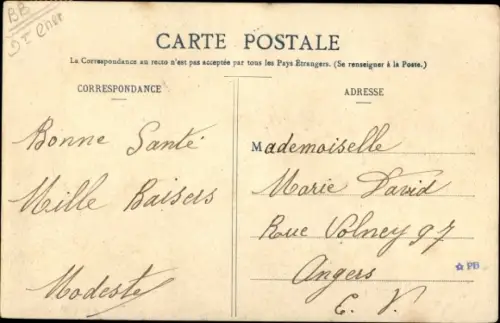 BB
CARTE POSTALE
La Correspondance au recto n'est pas acceptée par tous les Pays Étrangers. (Se renseigner à la Poste.)
CORRESPONDANCE
Bonne Santé
Mille Baisers
Modeste
ADRESSE
Mademoiselle
Marie David
Rue Volney 97
Angers
E. V.
PB